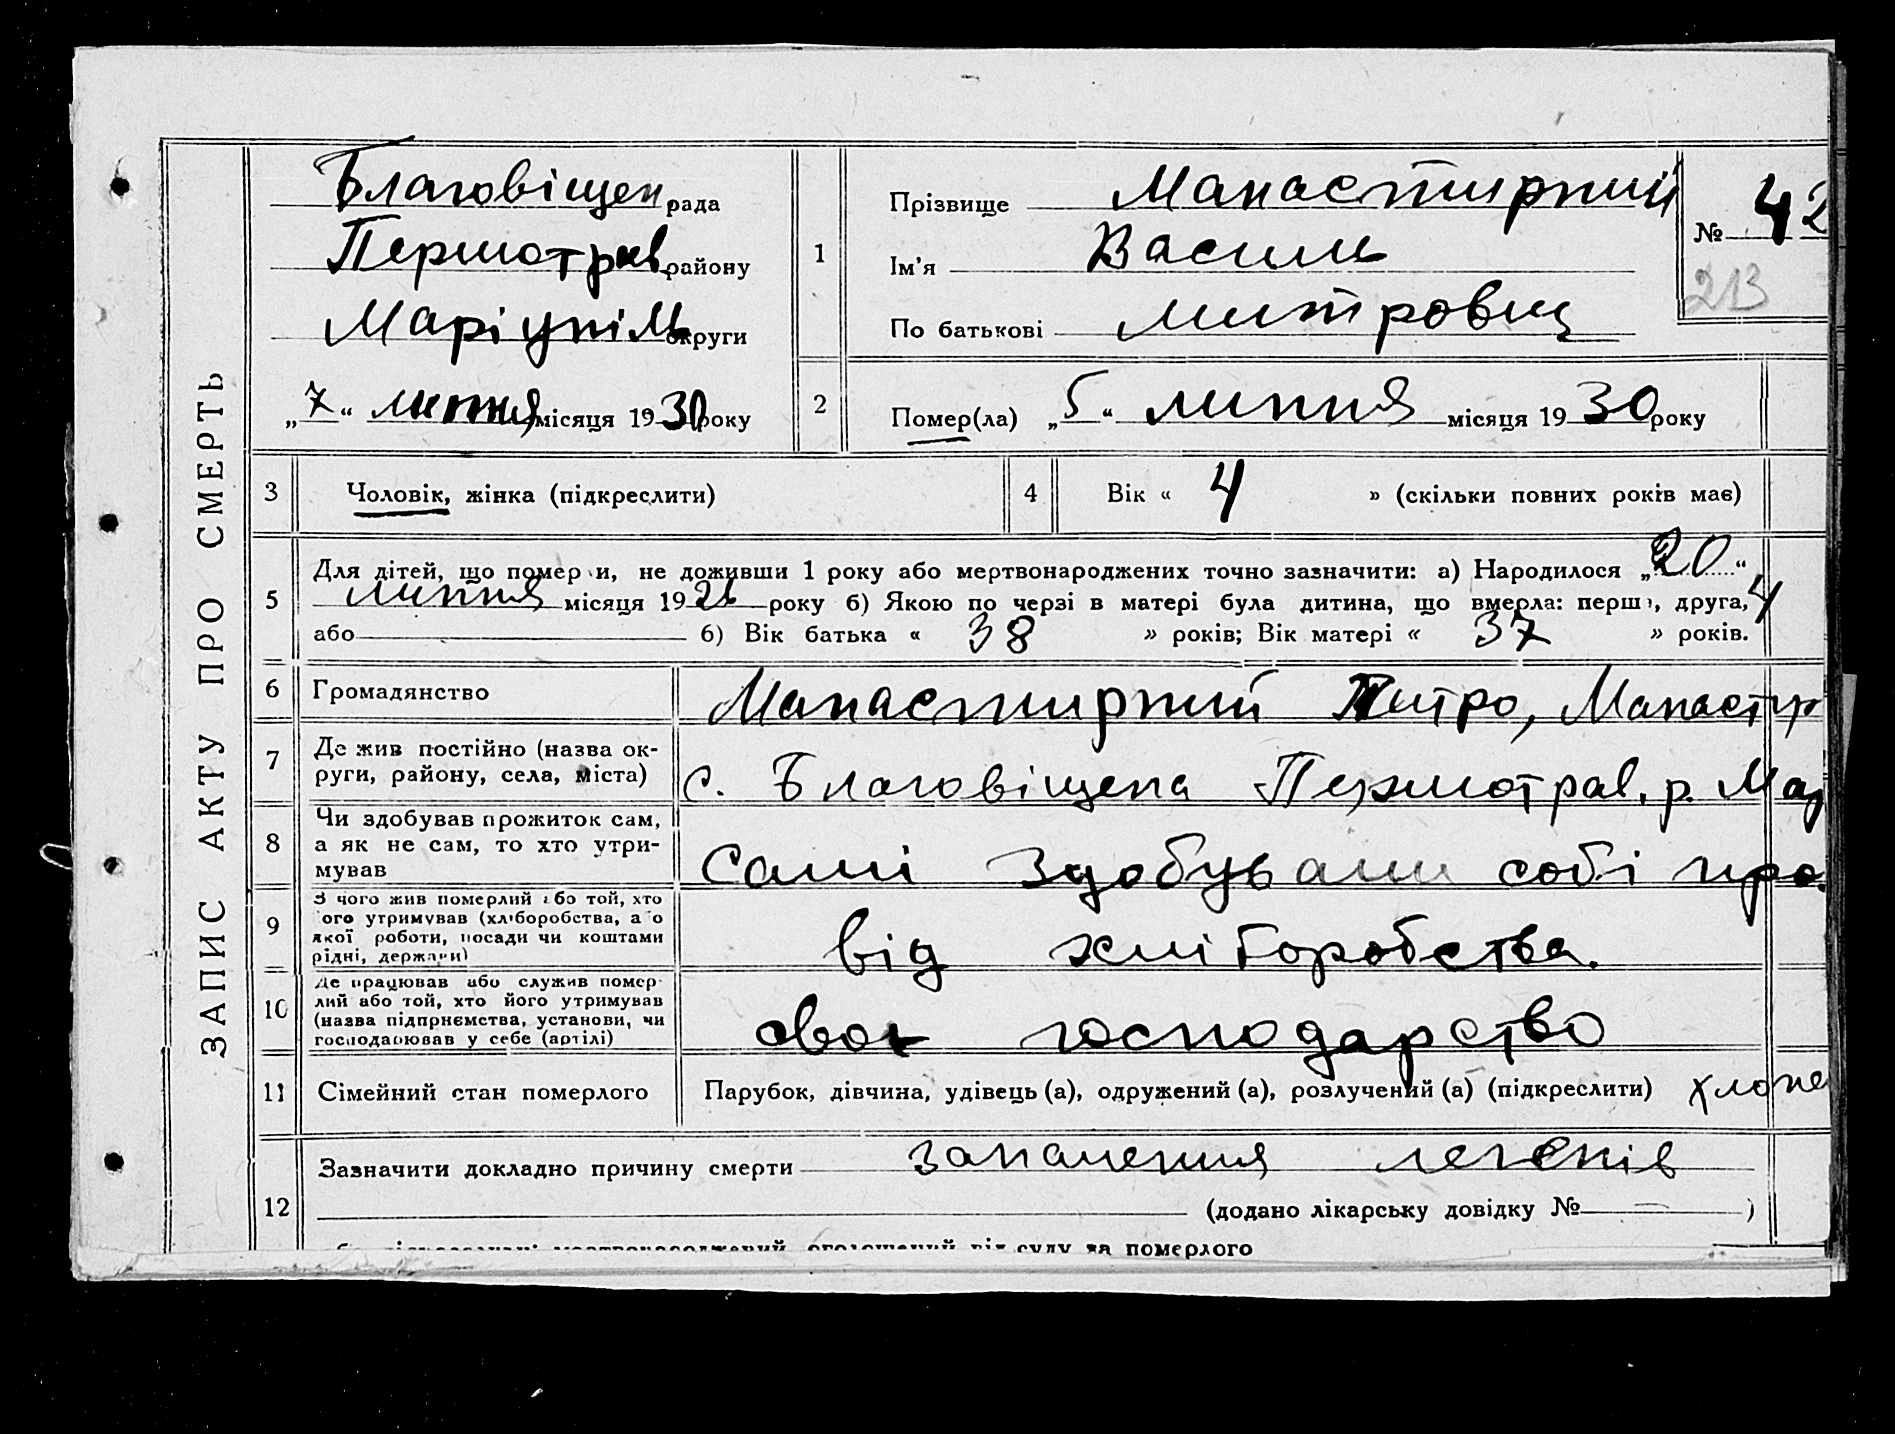 ЗАПИС АКТУ ПРО СМЕРТЬ
Благовіщен рада
Першотрав. району
Маріупіль округи
„7“ липня місяця 1930 року
1
Прізвище Манастирний
Ім'я Василь
По батькові Митрович
№ 42
213
2
Помер(ла) „5“ липня місяця 1930 року
3 Чоловік, жінка (підкреслити)
4 Вік « 4 » (скільки повних років має)
5
Для дітей, що померли, не доживши 1 року або мертвонароджених точно зазначити: а) Народилося „20“
липня місяця 1926 року б) Якою по черзі в матері була дитина, що вмерла: перша, друга, 4
або б) Вік батька « 38 » років; Вік матері « 37 » років.
6 Громадянство Манастирний Митро, Манастир
7 Де жив постійно (назва ок-
руги, району, села, міста) с. Благовіщена Першотрав. р. Мар
8 Чи здобував прожиток сам,
а як не сам, то хто утри-
мував Самі здобували собі про.
9 З чого жив померлий або той, хто
його утримував (хліборобства, або
якої роботи, посади чи коштами
рідні, держави) від хліборобства.
10 Де працював або служив помер-
лий або той, хто його утримував
(назва підприємства, установи, чи
господарював у себе (артілі) своє господарство
11 Сімейний стан померлого Парубок, дівчина, удівець (а), одружений (а), розлучений (а) (підкреслити) хлопе
12 Зазначити докладно причину смерти запалення легенів
(додано лікарську довідку № — )
мертвонароджений, оголошений від суду за померлого